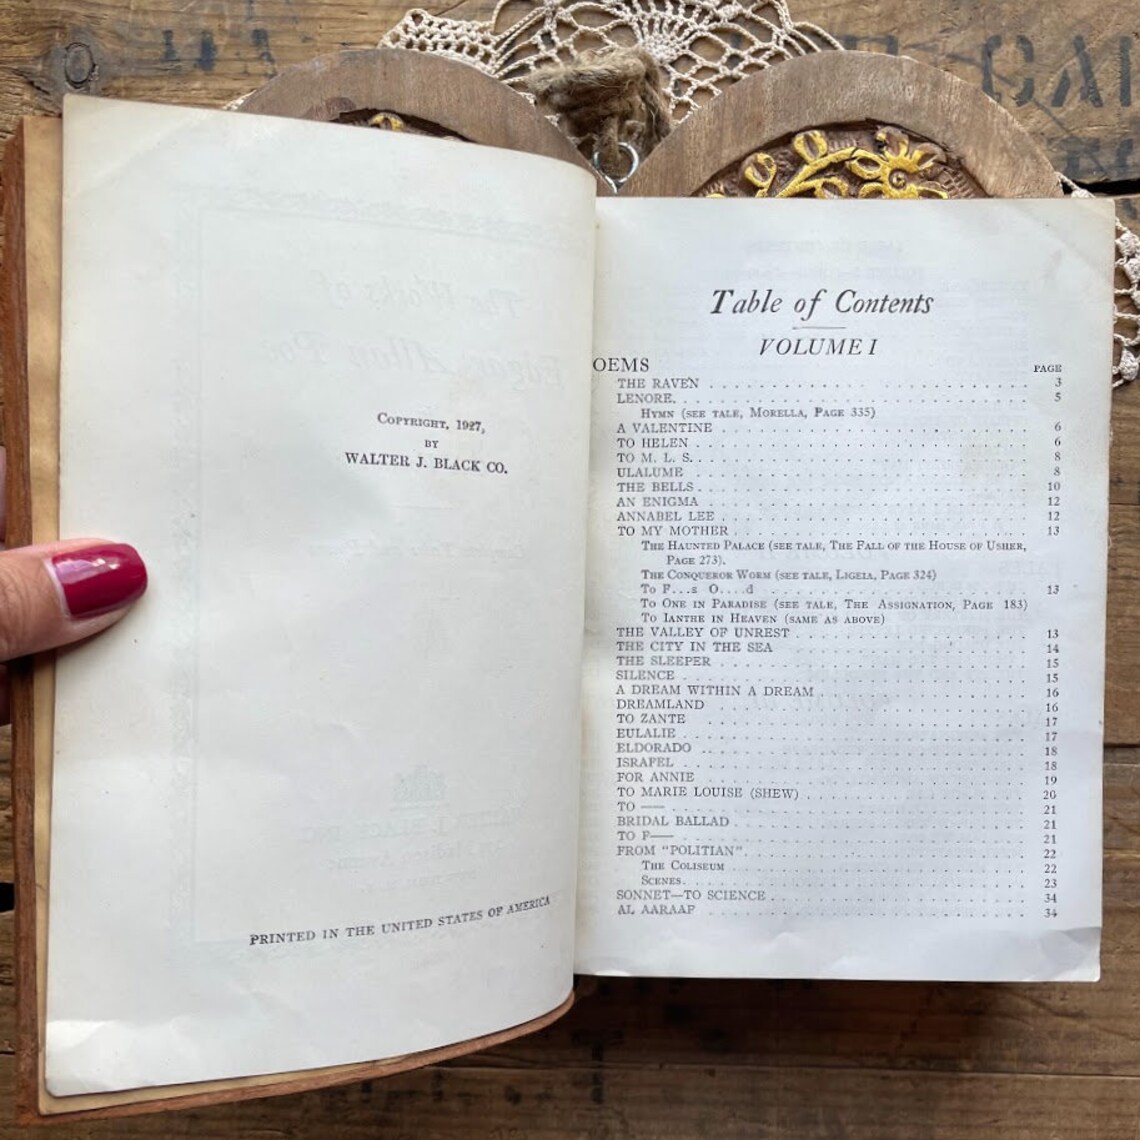 Copyright, 1927,
BY
WALTER J. BLACK CO.
PRINTED IN THE UNITED STATES OF AMERICA
Table of Contents
VOLUME I
OEMS PAGE
THE RAVEN 3
LENORE. 5
Hymn (see tale, Morella, Page 335)
A VALENTINE 6
TO HELEN 6
TO M. L. S. 8
ULALUME 8
THE BELLS 10
AN ENIGMA 12
ANNABEL LEE 12
TO MY MOTHER 13
The Haunted Palace (see tale, The Fall of the House of Usher,
Page 273).
The Conqueror Worm (see tale, Ligeia, Page 324)
To F...s O....d 13
To One in Paradise (see tale, The Assignation, Page 183)
To Ianthe in Heaven (same as above)
THE VALLEY OF UNREST 13
THE CITY IN THE SEA 14
THE SLEEPER 15
SILENCE 15
A DREAM WITHIN A DREAM 16
DREAMLAND 16
TO ZANTE 17
EULALIE 17
ELDORADO 18
ISRAFEL 18
FOR ANNIE 19
TO MARIE LOUISE (SHEW) 20
TO —— 21
BRIDAL BALLAD 21
TO F—— 21
FROM "POLITIAN" 22
The Coliseum 22
Scenes. 23
SONNET—TO SCIENCE 34
AL AARAAF 34